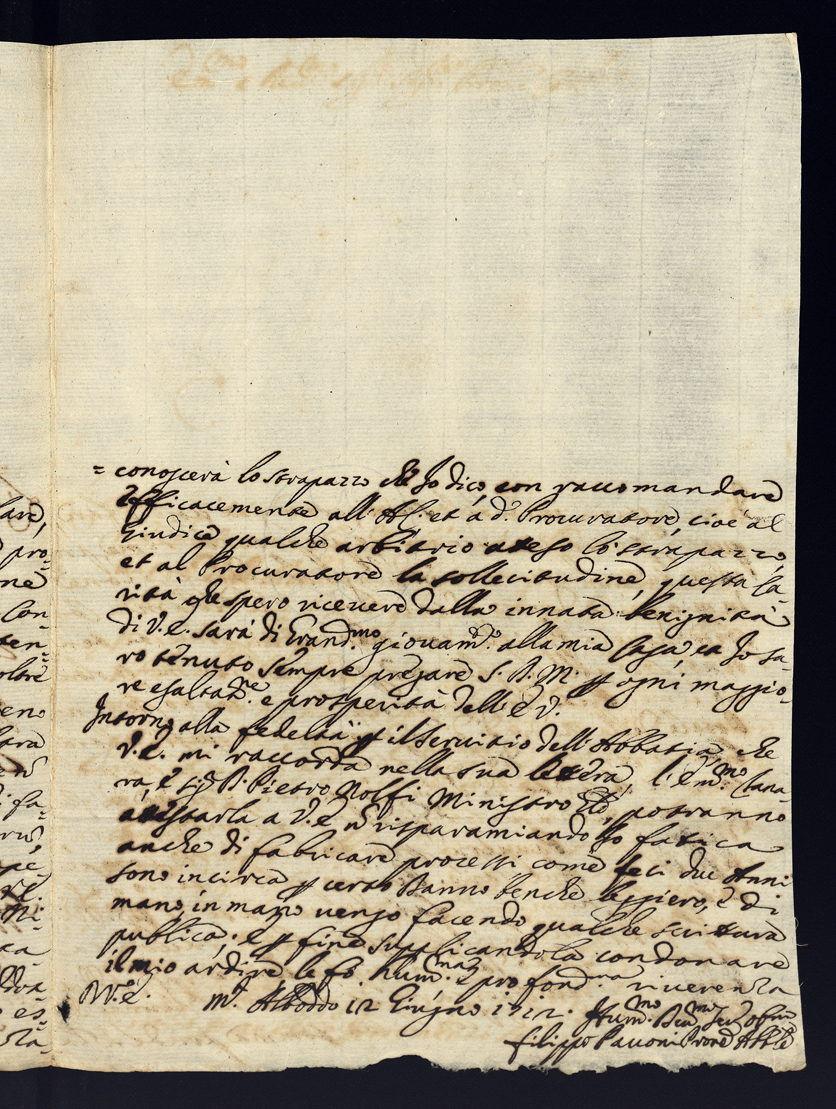 = conoscerà lo strapazzo che Io dico, con raccomandare
efficacemente all' et à d.º Procuratore, cioè al
Giudice qualche arbitrio ateso lo strapazzo,
et al Procuratore la sollecitudine, questa ca-
rità che spero ricevere dalla innata benignità
di V.E. sarà di Grand.mo giovam.to alla mia Casa, ea Io sa-
ro tenuto sempre pregare S.D.M. p ogni maggio-
re esaltaz.ne e prosperità dell' E.V.
Intorno alla fedeltà p il Servitio dell' Abbatia che
V.E. mi raccorda nella sua lettera l' em.mo
ra, e Sig.r D. Pietro Nolfi Ministro potranno
atestarla a V.E. nō risparamiando Io fatica
anche di fabricare processi come feci due Anni
sono incirca p certo Banno benche leggiero, e di
mano in mano vengo facendo qualche scrittura
publica; e p fine supplicandola condonare
il mio ardire le fo hum.ma e profond.ma riverenza
D.V.E. M. Alboddo 12 Giugno 1712. Hum.mo
Filippo Pavoni
lare,
pro-
ne
Con-
ten-
oltre
eno
fa-
es-